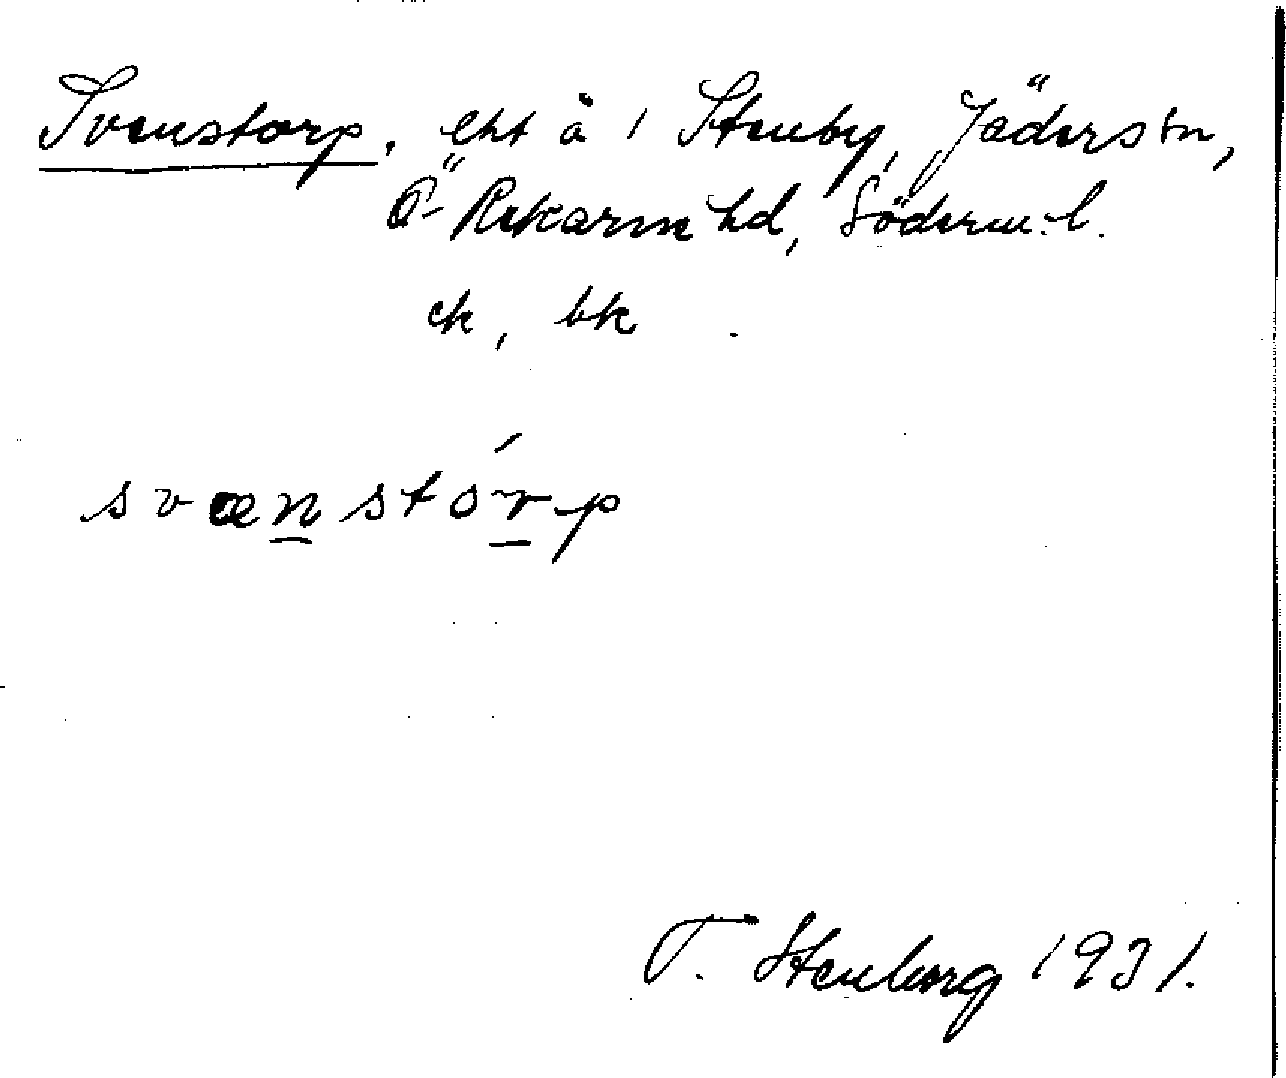 Svenstorp, lht å 1 Stenby, Jäders sn,
Ö- Rekarne hd, Söderm:l.
ek, bk
svænstórp
T. Stenborg 1931.